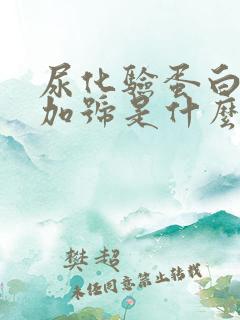 尿化验蛋白
加号是什么
樊超
未经同意禁止转载